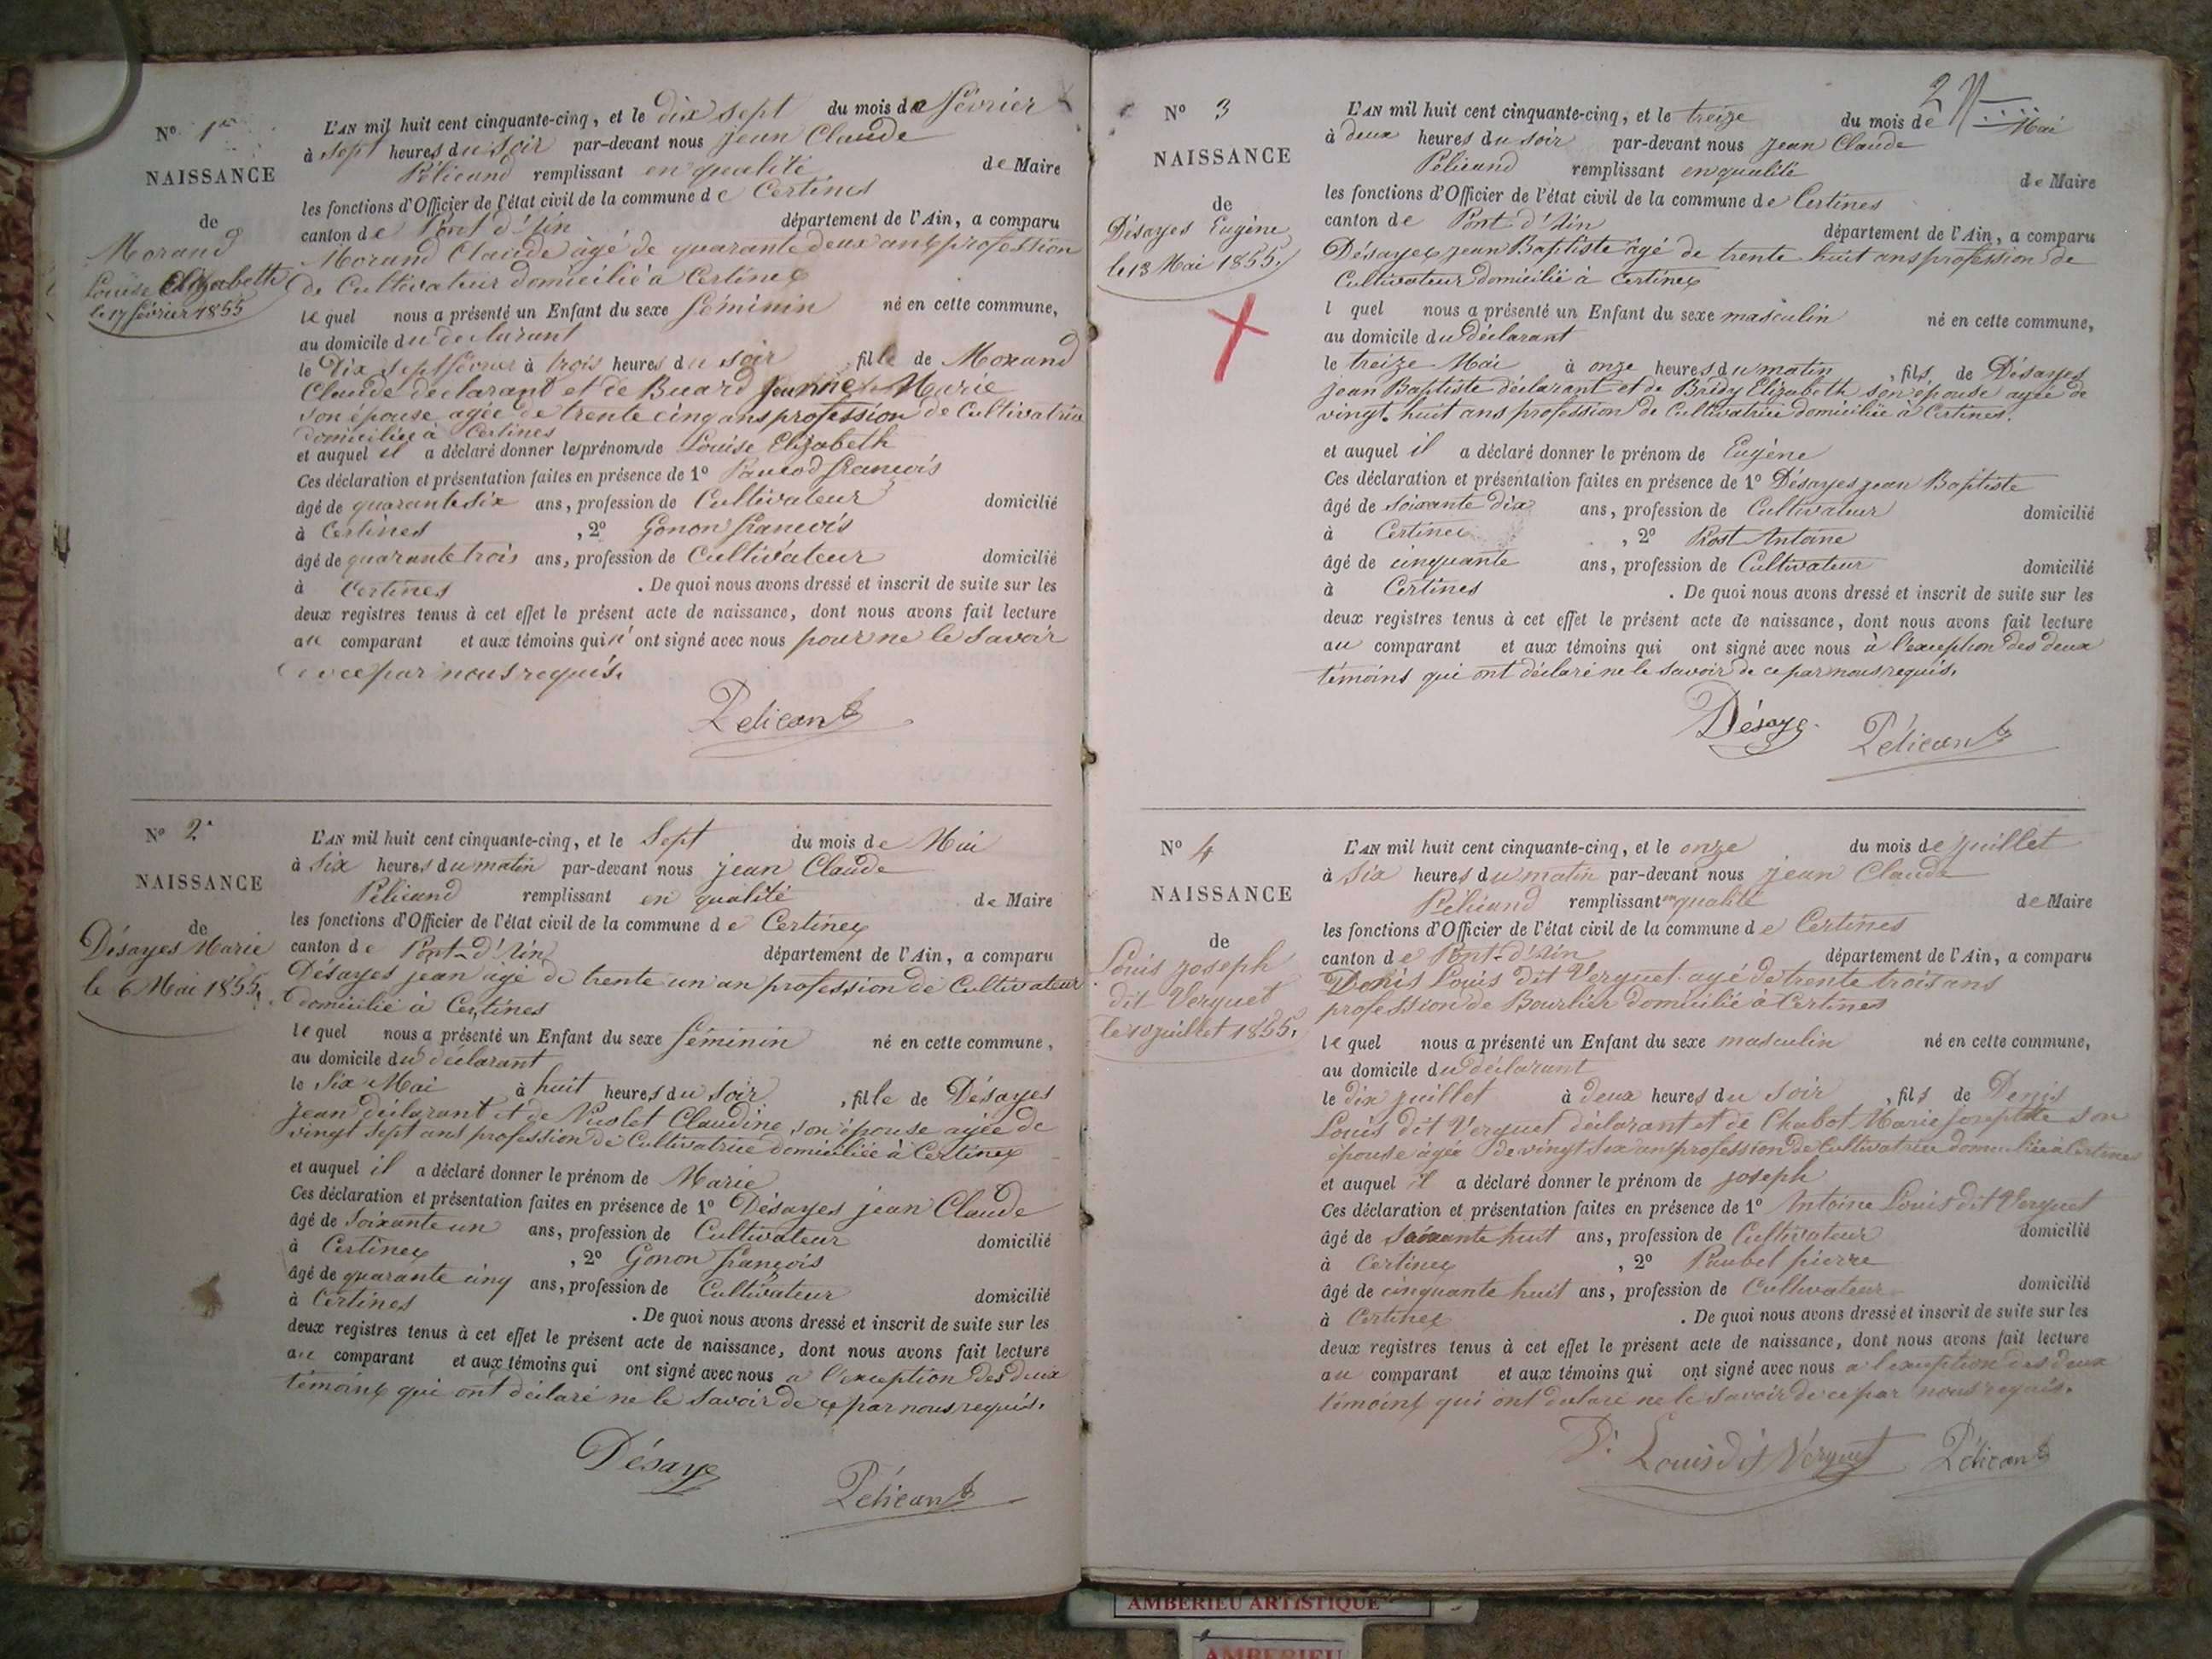 N° 1er
NAISSANCE
de
Morand
Louise Elizabeth
le 17 février 1855
L'AN mil huit cent cinquante-cinq, et le dix sept du mois de février
à sept heures du soir par-devant nous jean Claude
Pélicand remplissant en qualité de Maire
les fonctions d'Officier de l'état civil de la commune de Certines
canton de Pont d'Ain département de l'Ain, a comparu
Morand Claude âgé de quarante deux ans profession
de Cultivateur domicilié à Certines
lequel nous a présenté un Enfant du sexe féminin né en cette commune,
au domicile du déclarant
le Dix sept février à trois heures du soir, fille de Morand
Claude declarant et de Buard Jeanne Marie
son épouse agée de trente cinq ans profession de Cultivatrice
domiciliée à Certines
et auquel il a déclaré donner les prénoms de Louise Elizabeth
Ces déclaration et présentation faites en présence de 1° françois
âgé de quarante six ans, profession de Cultivateur domicilié
à Certines, 2° Gonon françois
âgé de quarante trois ans, profession de Cultivateur domicilié
à Certines. De quoi nous avons dressé et inscrit de suite sur les
deux registres tenus à cet effet le présent acte de naissance, dont nous avons fait lecture
au comparant et aux témoins qui n'ont signé avec nous pour ne le savoir
de ce par nous requis.
Pélicand
N° 2
NAISSANCE
de
Désayes Marie
le 6 Mai 1855.
L'AN mil huit cent cinquante-cinq, et le Sept du mois de Mai
à Six heures du matin par-devant nous jean Claude
Pélicand remplissant en qualité de Maire
les fonctions d'Officier de l'état civil de la commune de Certines
canton de Pont-d'Ain département de l'Ain, a comparu
Désayes jean agé de trente un an profession de Cultivateur
domicilié à Certines
lequel nous a présenté un Enfant du sexe féminin né en cette commune,
au domicile du déclarant
le Six Mai à huit heures du soir, fille de Désayes
jean déclarant et de Claudine son épouse agée de
vingt sept ans profession de Cultivatrice domiciliée à Certines
et auquel il a déclaré donner le prénom de Marie
Ces déclaration et présentation faites en présence de 1° Désayes jean Claude
âgé de Soixante un ans, profession de Cultivateur domicilié
à Certines, 2° Gonon françois
âgé de quarante cinq ans, profession de Cultivateur domicilié
à Certines. De quoi nous avons dressé et inscrit de suite sur les
deux registres tenus à cet effet le présent acte de naissance, dont nous avons fait lecture
au comparant et aux témoins qui ont signé avec nous a l'exception des deux
témoins qui ont déclaré ne le savoir de ce par nous requis.
Désaye
Pélicand
2
N° 3
NAISSANCE
de
Désayes Eugène
le 13 Mai 1855.
L'AN mil huit cent cinquante-cinq, et le treize du mois de Mai
à deux heures du soir par-devant nous jean Claude
Pélicand remplissant en qualité de Maire
les fonctions d'Officier de l'état civil de la commune de Certines
canton de Pont d'Ain département de l'Ain, a comparu
Désayes jean Baptiste âgé de trente huit ans profession de
Cultivateur domicilié à Certines
l quel nous a présenté un Enfant du sexe masculin né en cette commune,
au domicile du déclarant
le treize Mai à onze heures du matin, fils de Désayes
jean Baptiste déclarant et de Brédy Elizabeth son épouse agée de
vingt-huit ans profession de Cultivatrice domiciliée à Certines.
et auquel il a déclaré donner le prénom de Eugène
Ces déclaration et présentation faites en présence de 1° Désayes jean Baptiste
âgé de soixante dix ans, profession de Cultivateur domicilié
à Certines, 2° Prost Antoine
âgé de cinquante ans, profession de Cultivateur domicilié
à Certines. De quoi nous avons dressé et inscrit de suite sur les
deux registres tenus à cet effet le présent acte de naissance, dont nous avons fait lecture
au comparant et aux témoins qui ont signé avec nous à l'exception des deux
témoins qui ont déclaré ne le savoir de ce par nous requis.
Désaye
Pélicand
N° 4
NAISSANCE
de
Louis joseph
dit Verguet
le 10 juillet 1855.
L'AN mil huit cent cinquante-cinq, et le onze du mois de juillet
à Six heures du matin par-devant nous jean Claude
Pélicand remplissant en qualité de Maire
les fonctions d'Officier de l'état civil de la commune de Certines
canton de Pont-d'Ain département de l'Ain, a comparu
Denis Louis dit Verguet agé de trente trois ans
profession de Bourlier domicilié à Certines
lequel nous a présenté un Enfant du sexe masculin né en cette commune,
au domicile du déclarant
le dix juillet à deux heures du soir, fils de Denis
Louis dit Verguet déclarant et de Chabot Marie josephte son
épouse agée de vingt six ans profession de Cultivatrice domiciliée à Certines
et auquel il a déclaré donner le prénom de joseph
Ces déclaration et présentation faites en présence de 1° Antoine Louis dit Verguet
âgé de soixante huit ans, profession de Cultivateur domicilié
à Certines, 2° Paubel pierre
âgé de cinquante huit ans, profession de Cultivateur domicilié
à Certines. De quoi nous avons dressé et inscrit de suite sur les
deux registres tenus à cet effet le présent acte de naissance, dont nous avons fait lecture
au comparant et aux témoins qui ont signé avec nous a l'exception des deux
témoins qui ont déclaré ne le savoir de ce par nous requis.
D. Louis dit Verguet
Pélicand
AMBERIEU ARTISTIQUE
AMBERIEU